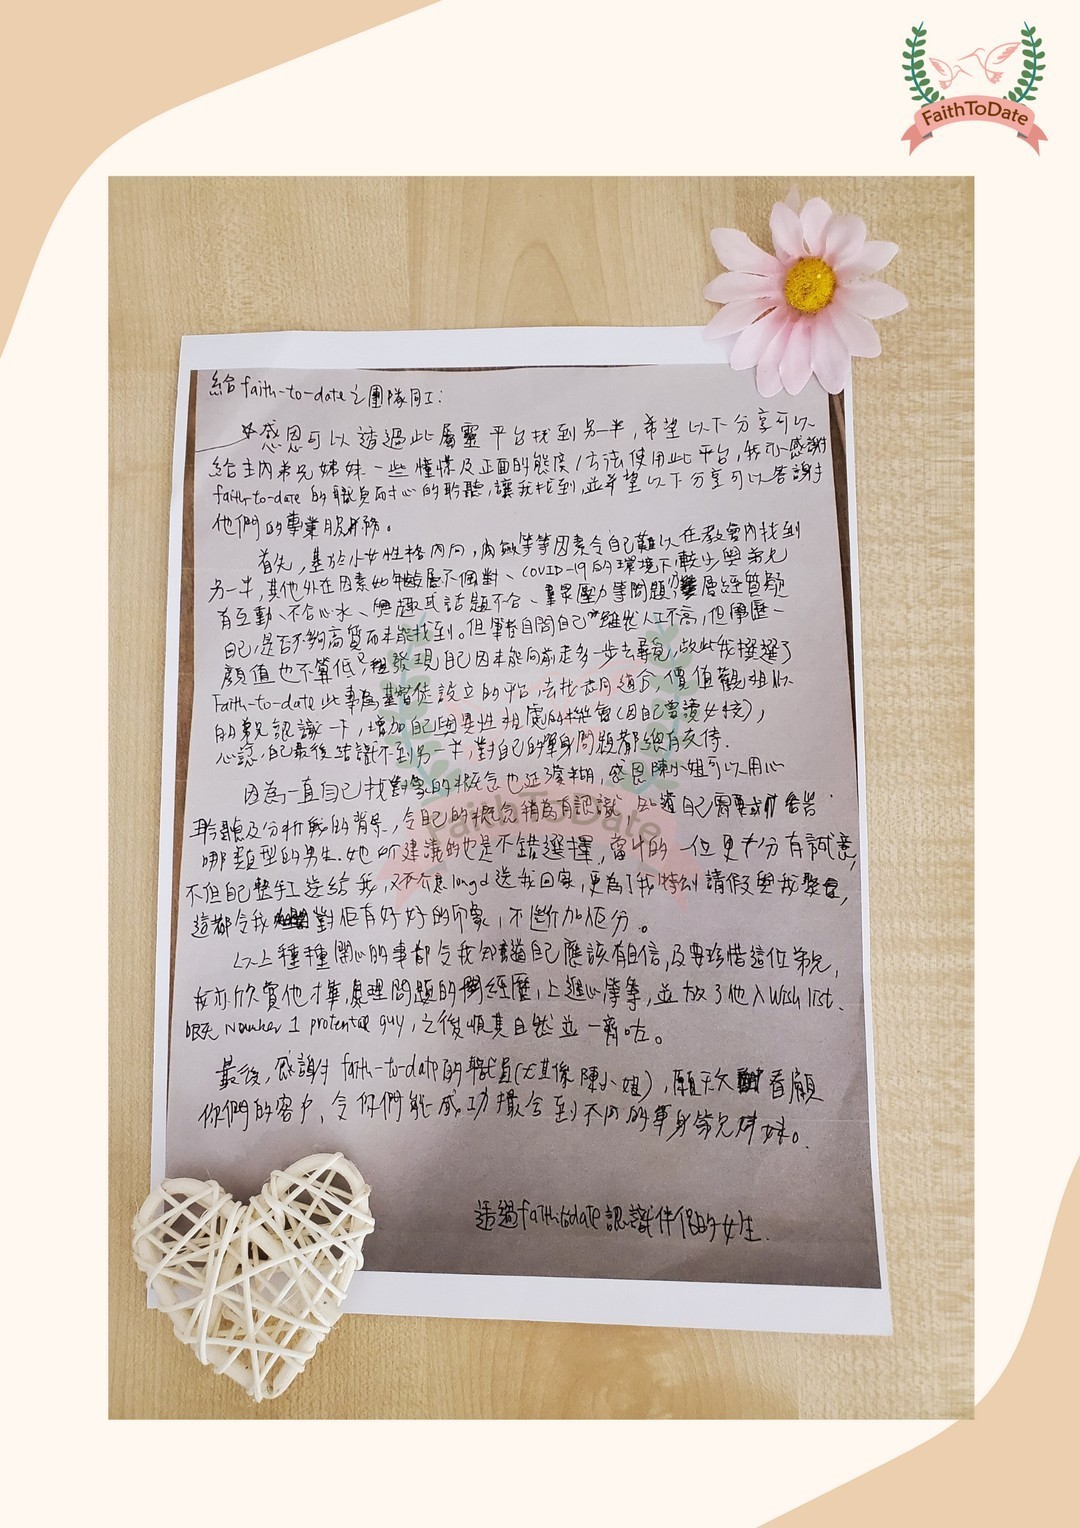 FaithToDate
給faith-to-date之團隊同工:
感恩可以透過此屬靈平台找到另一半,希望以下分享可以
給主內弟兄姊妹一些憧憬及正面的態度/方法使用此平台,我亦感謝
faith-to-date的職員耐心的聆聽,讓我找到,並希望以下分享可以答謝
他們的專業服務。
首先,基於小女性格內向,內斂等等因素令自己難以在教會內找到
另一半,其他外在因素如年齡層不個對、COVID-19的環境下,較少與弟兄
有互動、不合心水、興趣或話題不合、羣眾壓力等問題,層經質疑
自己,是否不夠高質而未能找到。但筆者自問自己雖然人工不高,但學歷、
顏值也不算低,發現自己因未能向前走多一步去尋覓,故此我揀選了
Faith-to-date此專為基督徒設立的平台,去找適合,價值觀相似
的弟兄認識一下,增加自己與異性相處的機會(因自己曾讀女校),
心諗,自己最後結識不到另一半,對自己的單身問題都總有交待.
因為一直自己找對象的概念也近模糊,感恩陳小姐可以用心
聆聽及分析我的背景,令自己的概念稍為有認識,知道自己需要或
哪類型的男生.她所建議的也是不錯選擇,當中的一位更十分有誠意,
不但自己整手工送給我,又不介意long d送我回家,更為了我特別請假與我
這都令我對佢有好好的印象,不斷加佢分。
以上種種開心的事都令我知道自己應該有自信,及要珍惜這位弟兄,
我亦欣賞他才華,處理問題的經歷,上進心等等,並放了他入Wish list.
Number 1 protental guy,之後順其自然並一齊咗。
最後,感謝faith-to-date的職員(尤其係陳小姐),願天父看顧
你們的客戶,令你們能成功撮合到不同的單身弟兄姊妹。
透過faith-to-date認識伴侶的女生.
FaithToDate